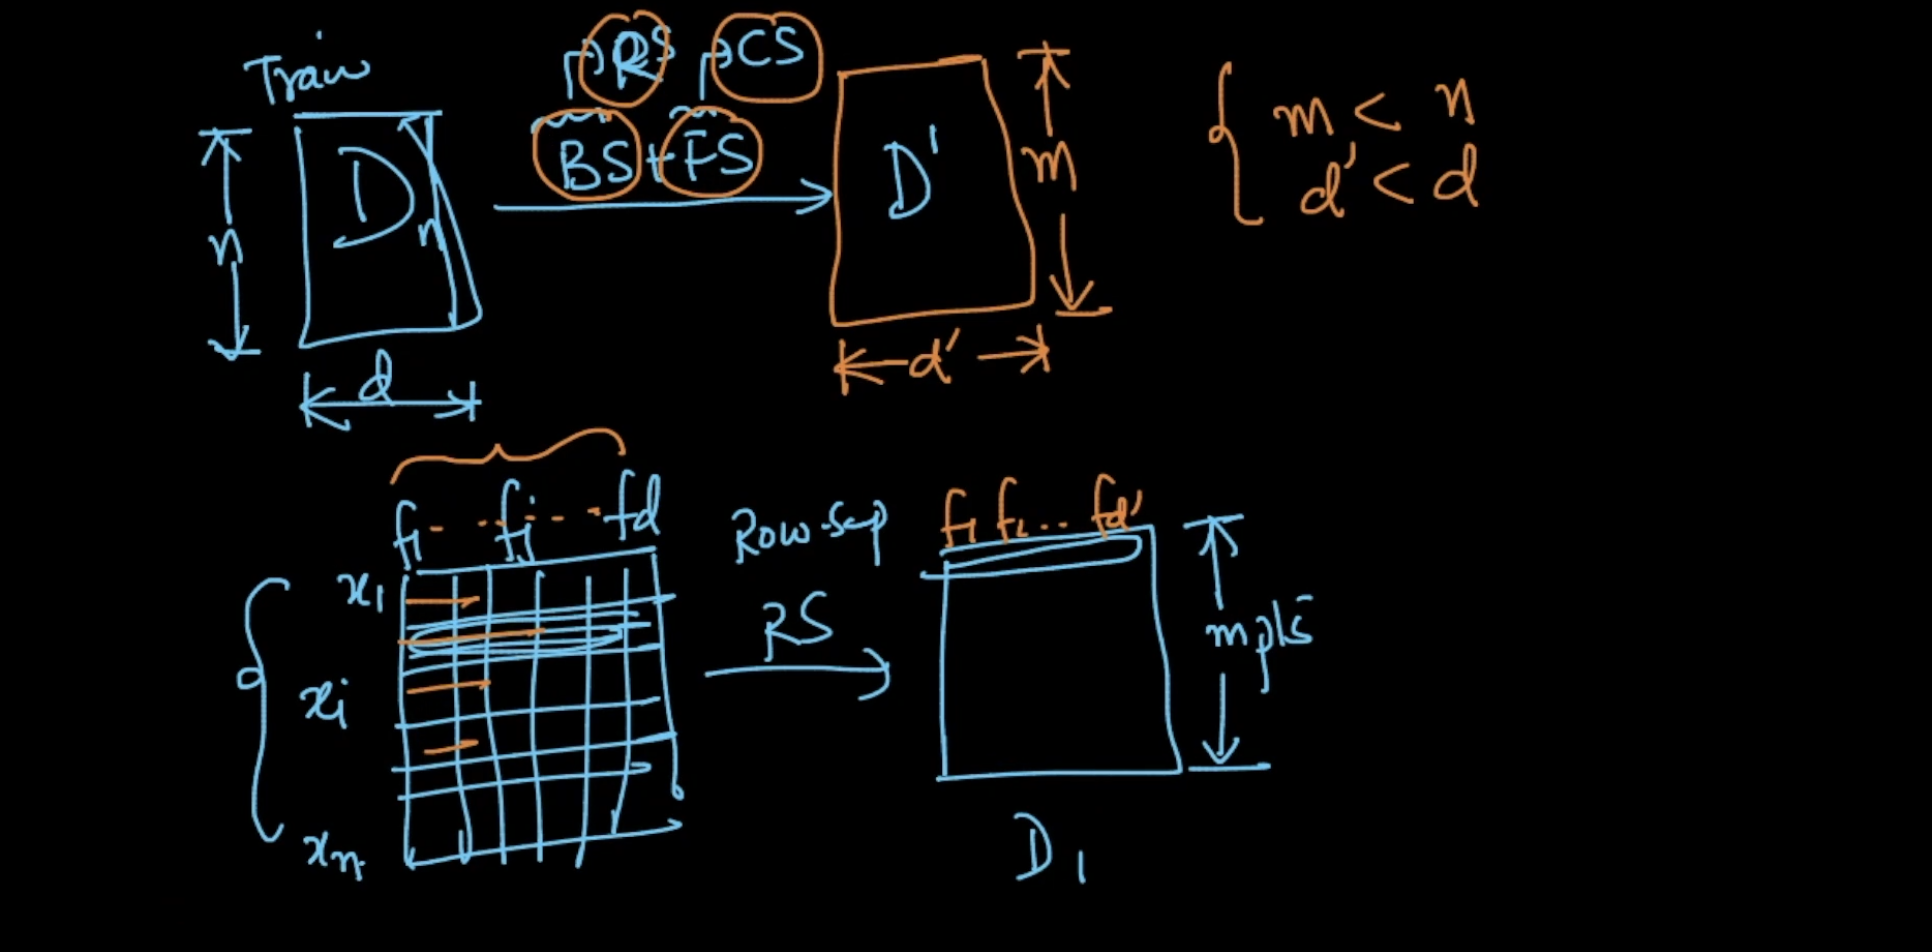 Train
RS CS
BS + FS
D
n
n
d
D'
m
d'
m < n
d' < d
f1 - - - fj - - - fd
x1
xi
xn
Row-Samp
RS
f1 f2 ... fd'
m pts
D1